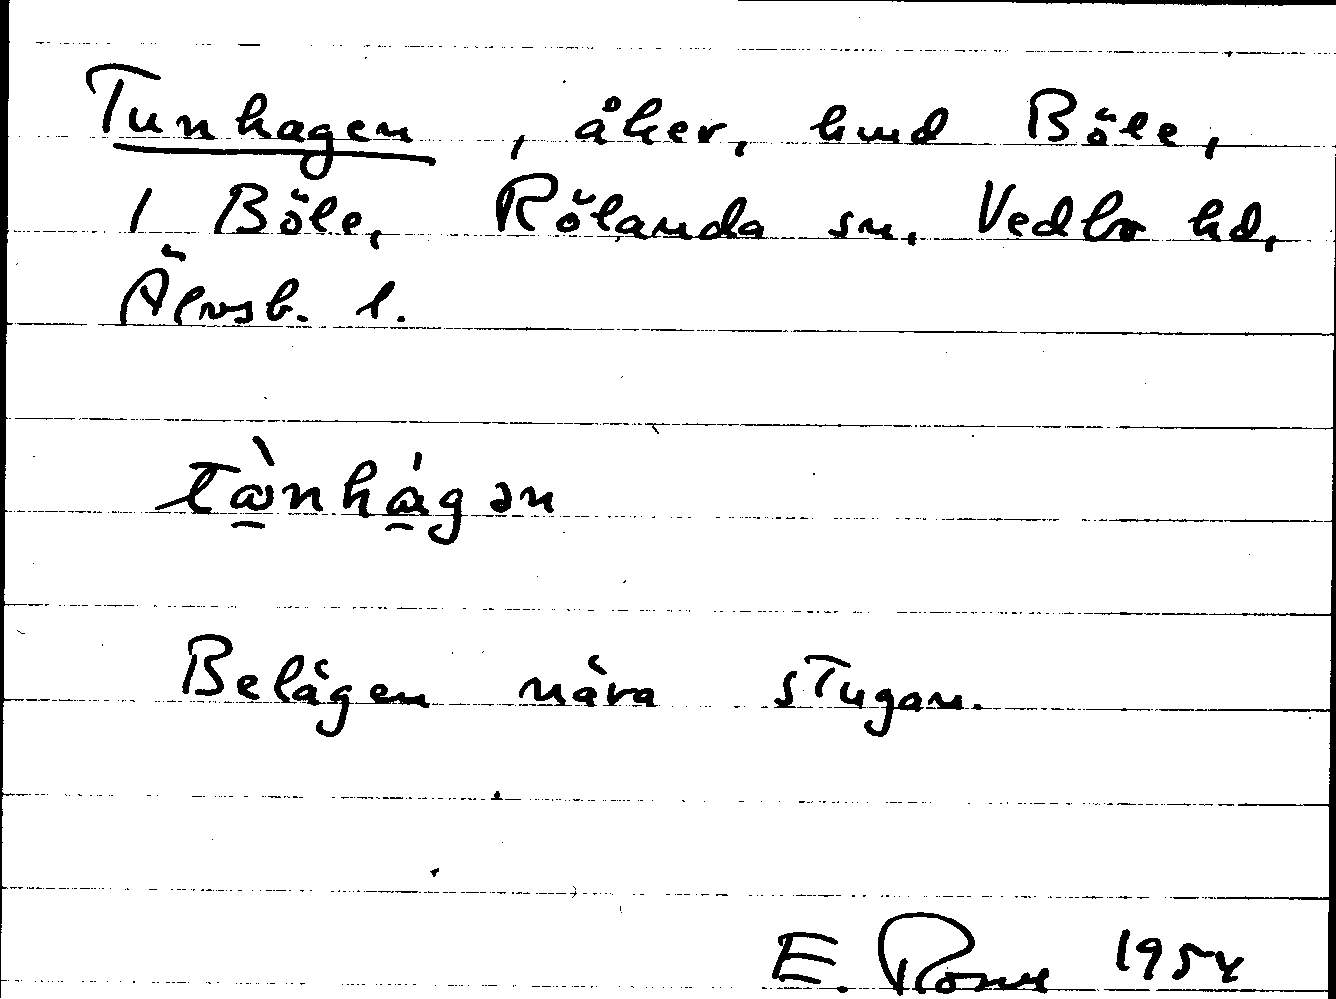 Tunhagen, åker, hmd Böle,
1 Böle, Rölanda sn, Vedbo hd,
Älvsb. l.
tὼ̱nhά̱gən
Belägen nära stugan.
E. 1954